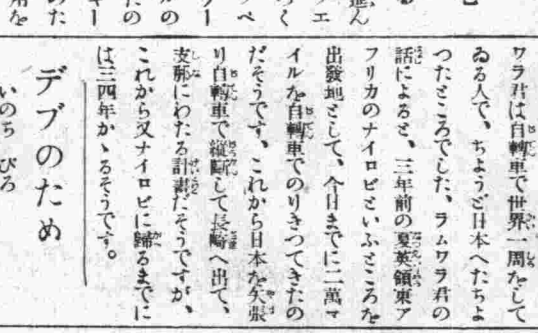 ワラ君は自轉車で世界一周をして
ゐる人で、ちようど日本へたちよ
つたところでした、ラムワラ君の
話によると、三年前の夏英領東ア
フリカのナイロビといふところを
出發地として、今日までに二萬マ
イルを自轉車でのりきつてきたの
だそうです、これから日本を矢張
り自轉車で縱斷して長崎へ出て、
支那にわたる計畫だそうですが、
これから又ナイロビに歸るまでに
は三四年かゝるそうです。
デブのため
いのち びろ